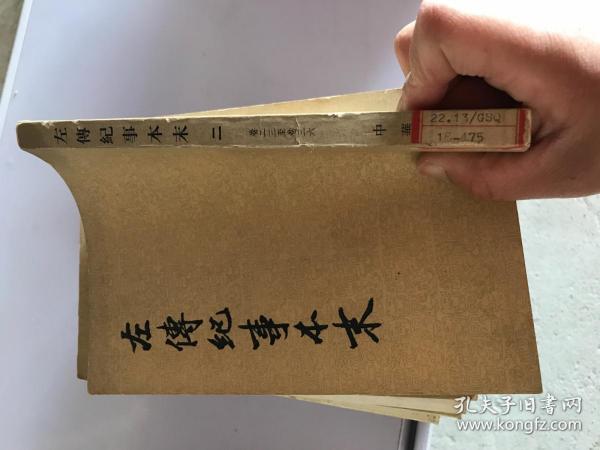 左傳紀事本末 二 卷二三至卷三六 中華
22.13/GSQ
18-475
左傳紀事本末
孔夫子旧书网
www.kongfz.com